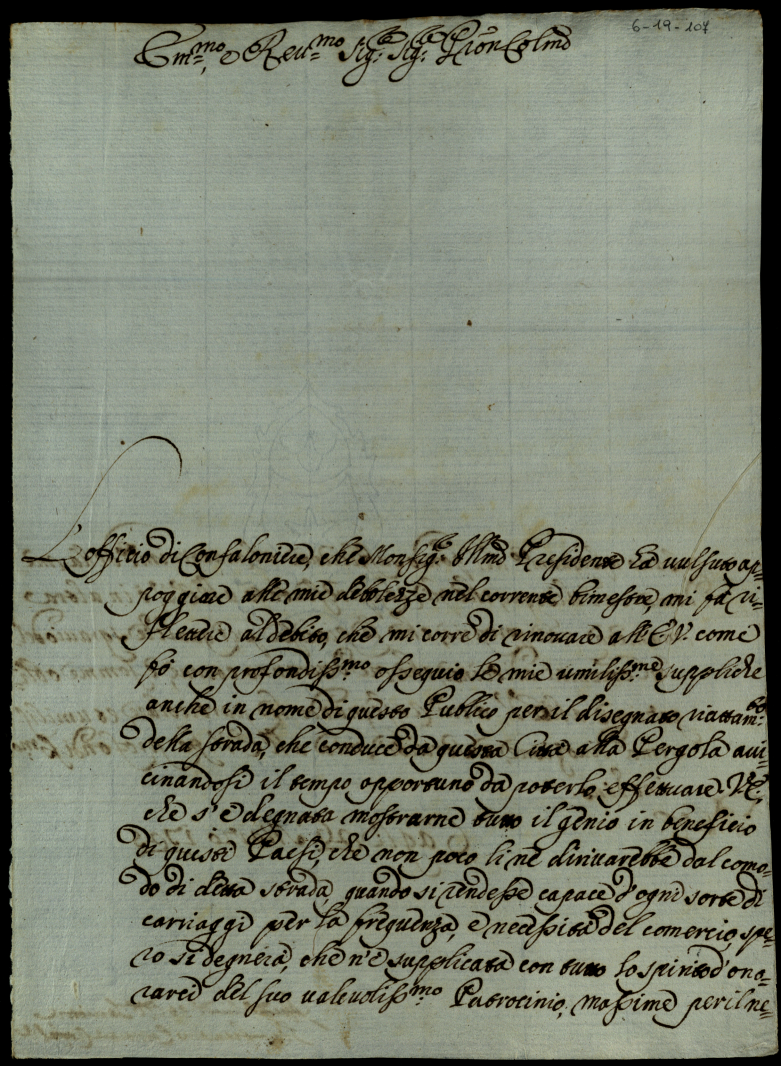 6-19-107
Em.mo, e Reu.mo Sig.e Sig.e Pron Colmo
L'officio di Confaloniere, che Monsig.e Illmo Presidente hà uulsuto ap=
poggiare alle mie debolezze nel corrente bimestre, mi fà ri=
flettere al debito, che mi corre di rinouare all'E.V. come
fò con profondiss.mo ossequio le mie umiliss.me suppliche
anche in nome di questo Publico per il disegnato riattam.to
della strada, che conduce da questa Città alla Pergola aui=
cinandosi il tempo opportuno da poterlo effettuare. V.E.
che s'è degnata mostrarne tutto il genio in beneficio
di questi Paesi, che non poco li ne diriuarebbe dal como=
do di detta strada, quando si rendesse capace d'ogni sorte di
carriaggi per la frequenza, e necessità del comercio, spe=
ro si degnerà, che n'è supplicata con tutto lo spirito d'ono=
rarci del suo ualeuoliss.mo Patrocinio, massime per il ne=